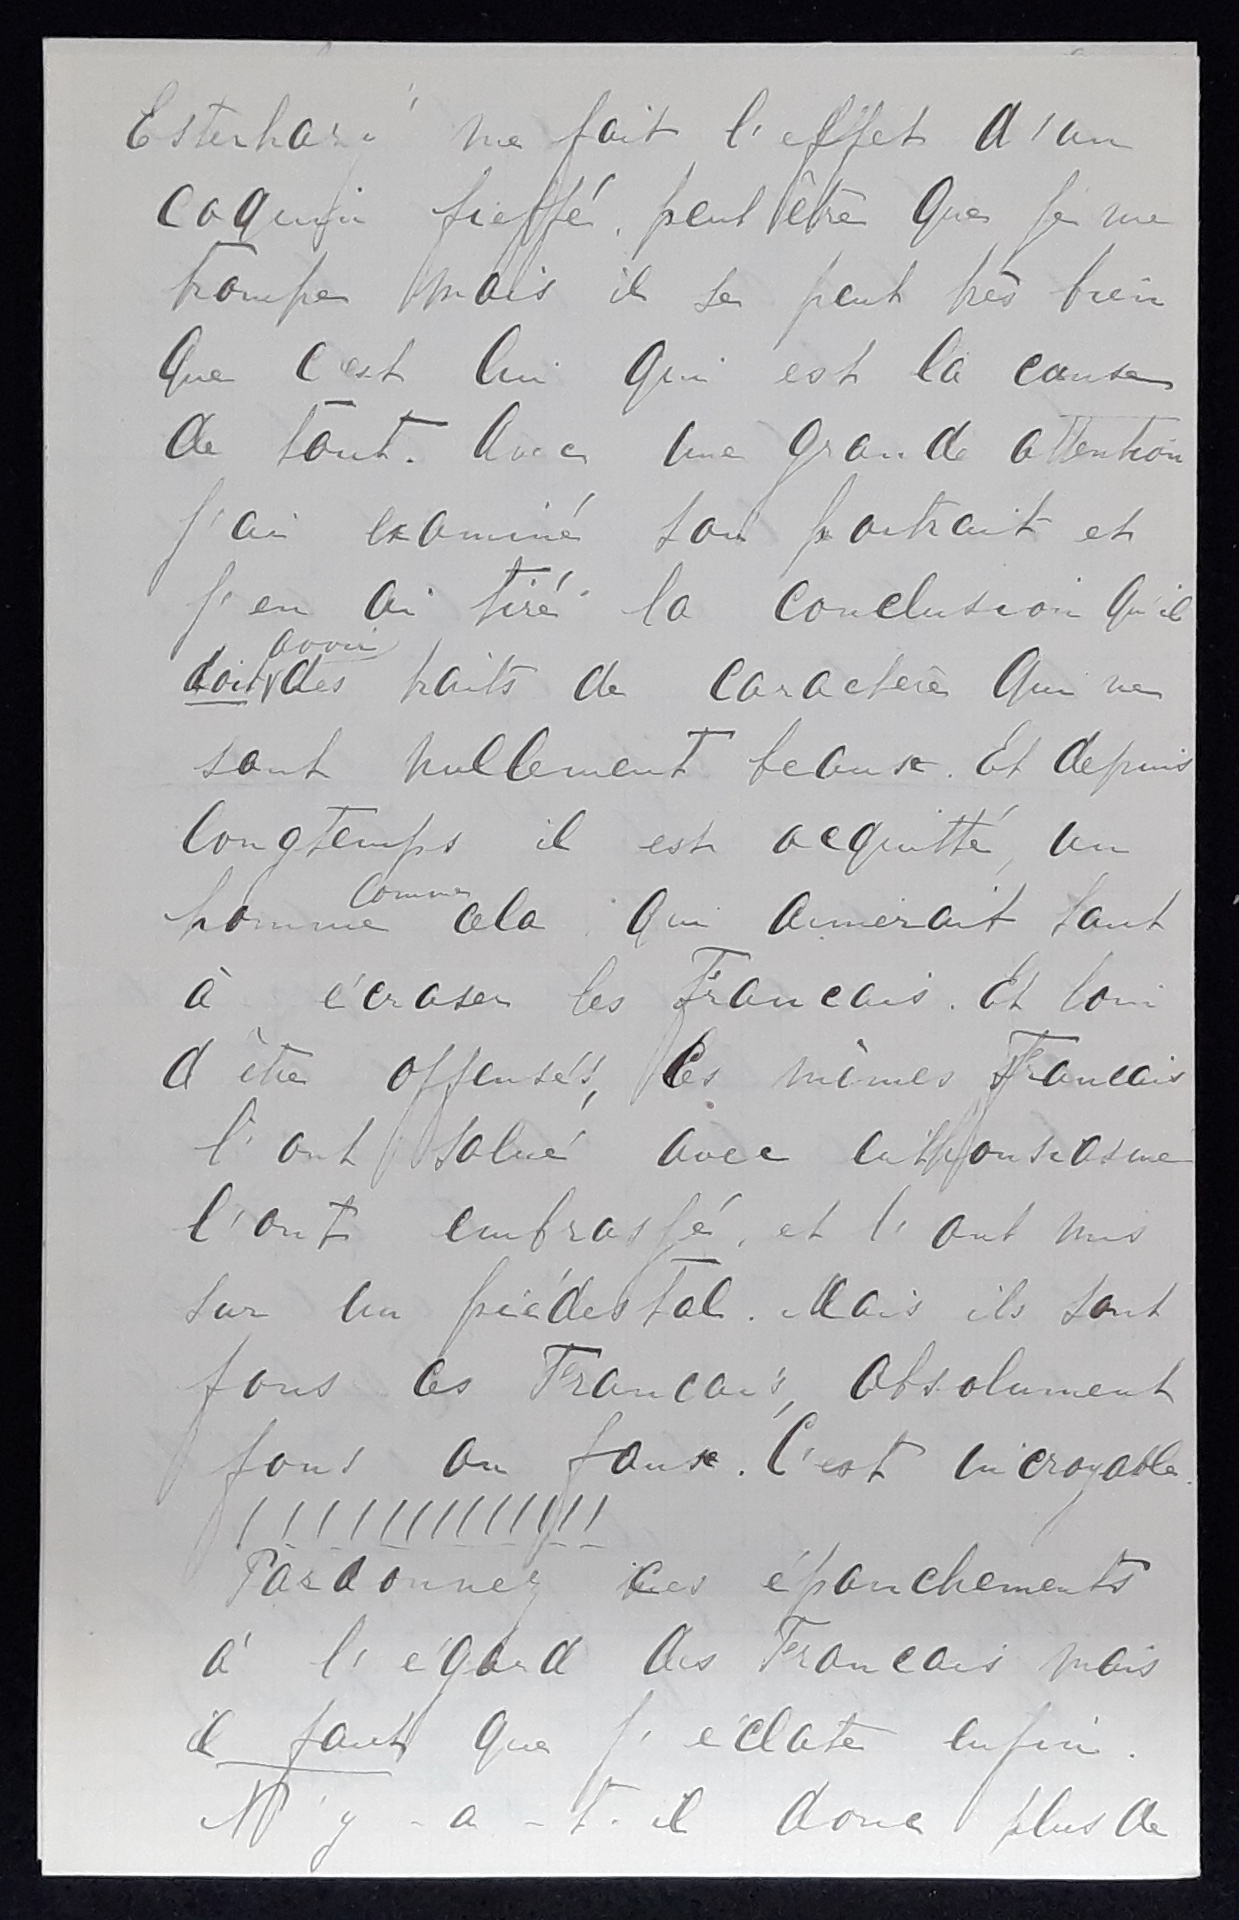 Esterhazy me fait l'effet d'un
coquin fieffé, peut être que je me
trompe mais il se peut très bien
que c'est lui qui est la cause
de tout. Avec une grande attention
j'ai examiné son portrait et
j'en ai tiré la conclusion qu'il
avoir
doit des traits de caractère qui ne
sont nullement beaux. Et depuis
longtemps il est acquitté, un
comme
homme cela qui aimerait tant
à écraser les Francais. Et loin
d'être offensés, les mêmes Francais
l'ont salué avec enthousiasme
l'ont embrassé, et l'ont mis
sur un piédestal. Mais ils sont
fous ces Francais, absolument
fous ou faux. C'est incroyable.
!!!!!!!!!!!!!
Pardonnez ces épanchements
à l'égard des Francais mais
il faut que j'éclate enfin.
N'y-a-t-il donc plus de